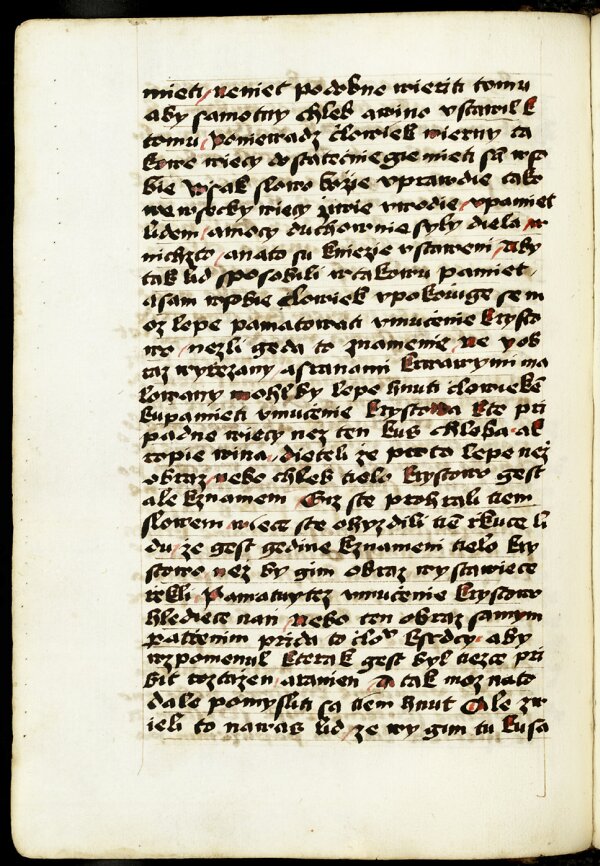 mieti / neniet podobne wieriti tomu
aby samotny chleb awino vstawil k
tomu / poniewadz člowiek wierny ta
kowe wiecy dostatečnie gie mieti sā wso
bie wssak slowo božie vprawdie tako
we wsecky wiecy žiwie wwodie / vpamiet
lidem / amocy duchownie syly diela / w
nichzto / anato su kniezie vstaweni / Aby
tak lid sposobili wtakowu pamiet /
asam wsobie člowiek vpokoiuge se m
oz lepe pamatowati vmučenie krysto
wo / nezli geda to znamenie / ne vob
raz wyrezany astranami krwawymi ma
lowany mohl by lepe hnuti člowieke
kupamieti vmučenie krystowa kte pri
padne wiecy nez ten kus chleba al
wpie wina / dieteli že pro to lepe než
obraz nebo chleb tielo krystowo gest
ale kznamem Giz ste prohrali tiem
slowem wiece ste ohyzdili tiē rkuce li
du / že gest gedine kznameni tielo kry
stowo nez by gim obraz wystawiece
rekli / Pamatuytez vmučenie krystowo
hlediece nan / nebo ten obraz samym
patrenim prida to člow ksrdcy / aby
wzpomenul kterak gest byl tiezce pri
bit roztazen aranien A tak moz nato
dale pomysliti sa tiem hnut Ale zw
ieli to nawas lid / že wy gim tu kusa